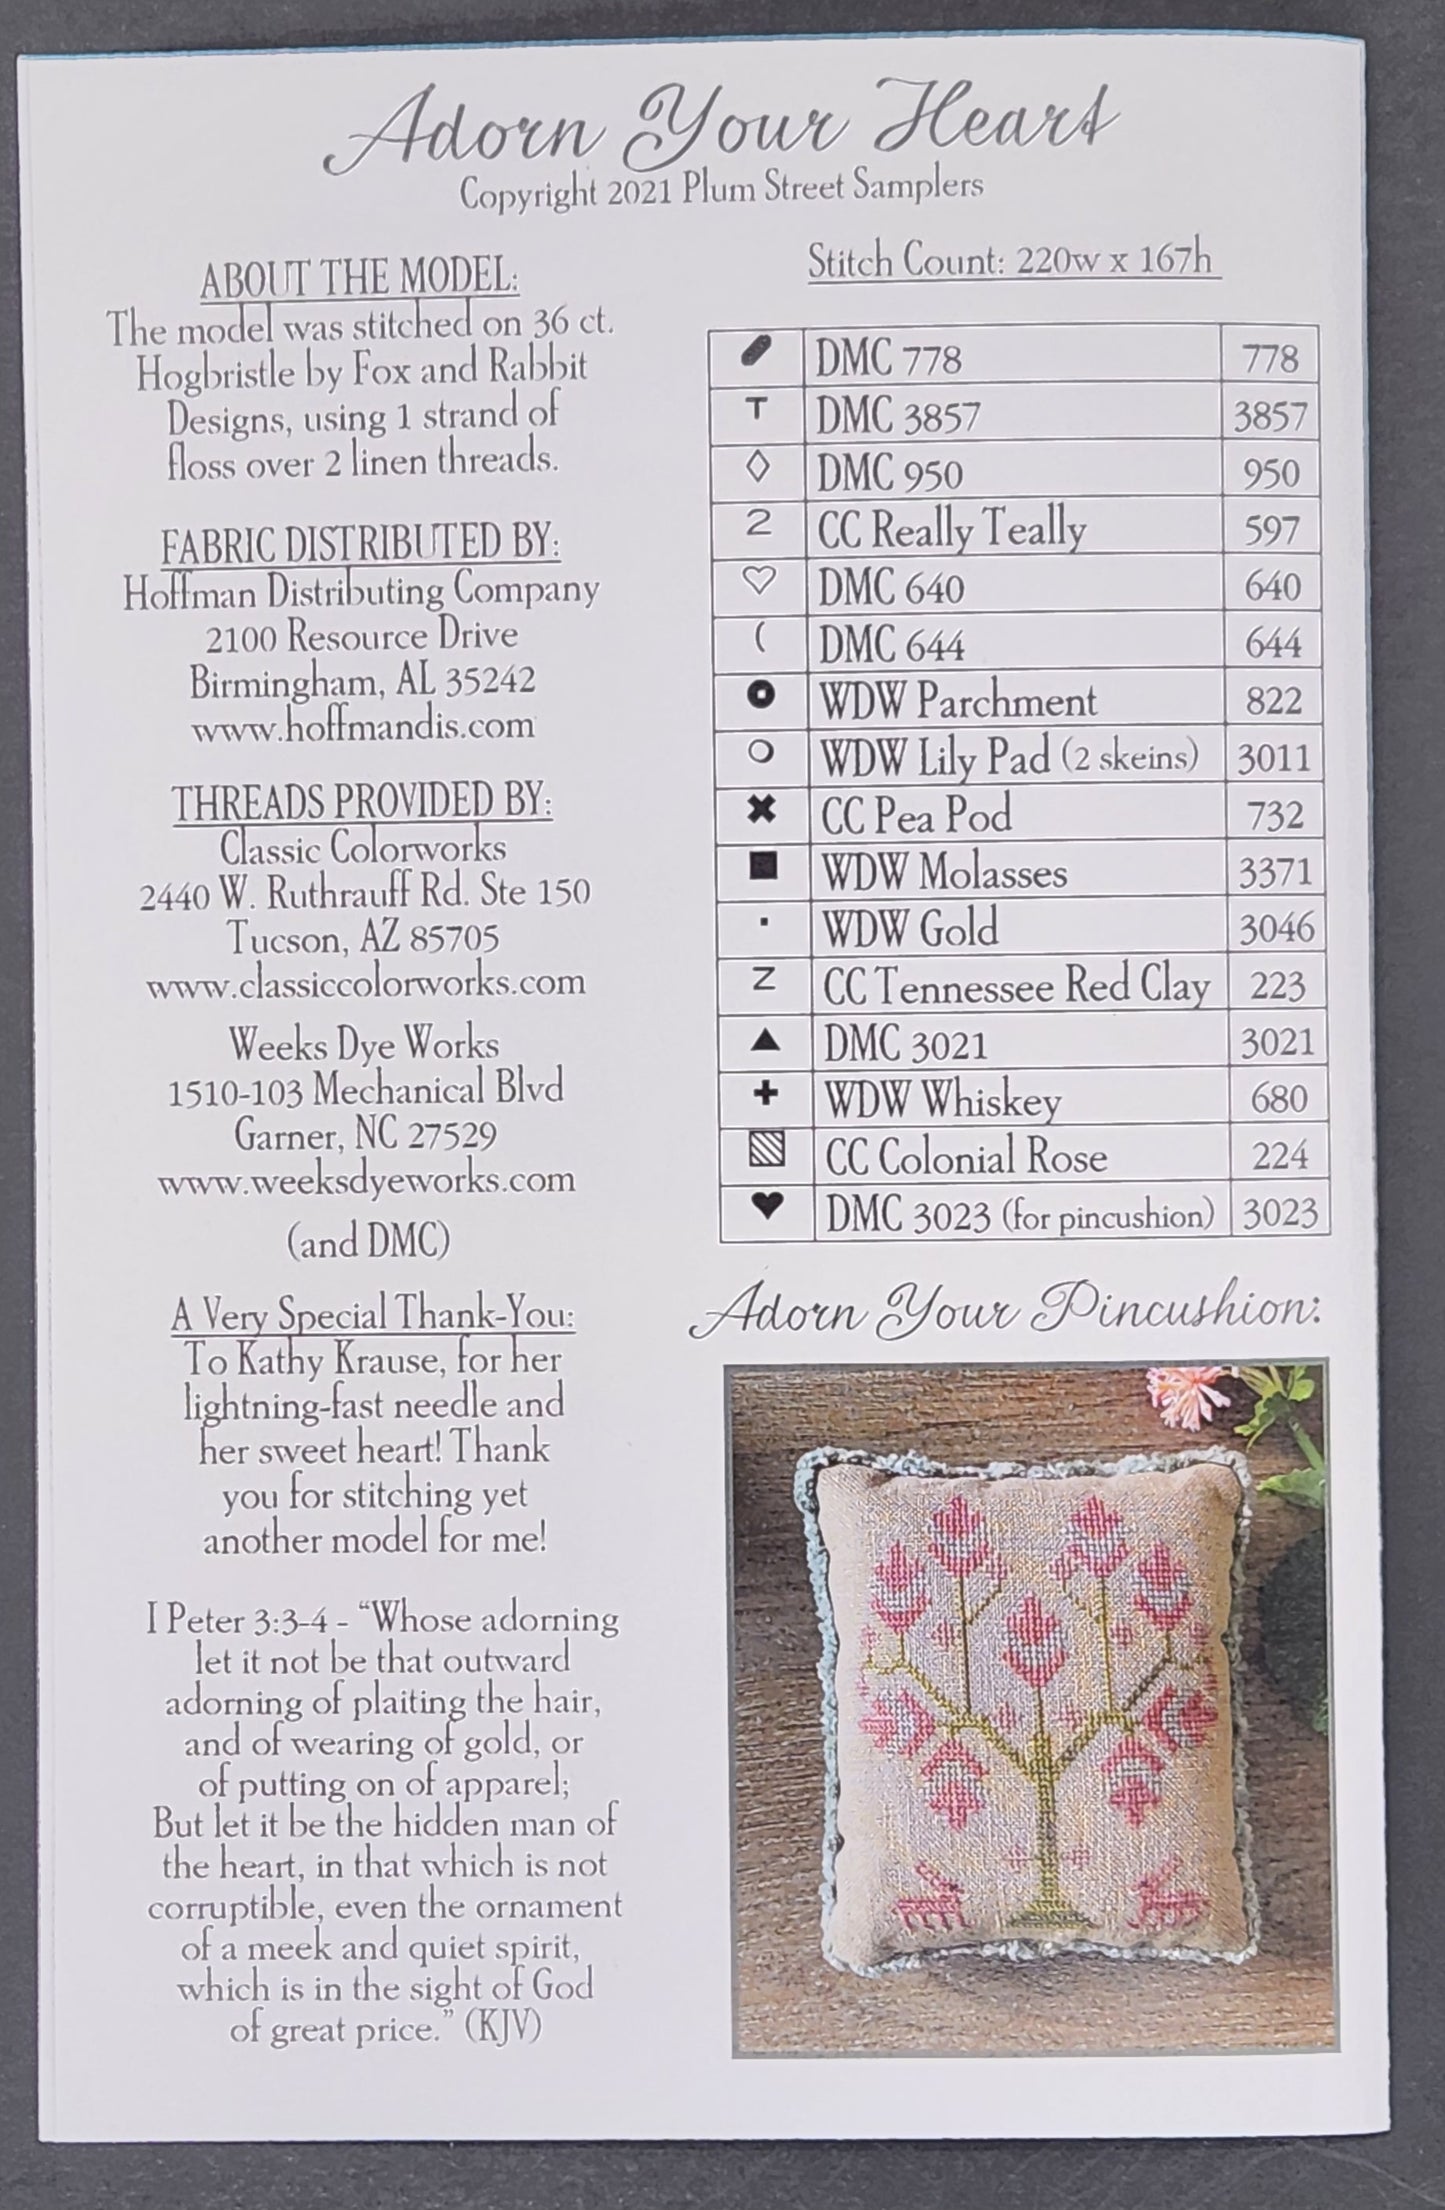 Adorn Your Heart
Copyright 2021 Plum Street Samplers
ABOUT THE MODEL:
The model was stitched on 36 ct.
Hogbristle by Fox and Rabbit
Designs, using 1 strand of
floss over 2 linen threads.
FABRIC DISTRIBUTED BY:
Hoffman Distributing Company
2100 Resource Drive
Birmingham, AL 35242
www.hoffmandis.com
THREADS PROVIDED BY:
Classic Colorworks
2440 W. Ruthrauff Rd. Ste 150
Tucson, AZ 85705
www.classiccolorworks.com
Weeks Dye Works
1510-103 Mechanical Blvd
Garner, NC 27529
www.weeksdyeworks.com
(and DMC)
A Very Special Thank-You:
To Kathy Krause, for her
lightning-fast needle and
her sweet heart! Thank
you for stitching yet
another model for me!
I Peter 3:3-4 - “Whose adorning
let it not be that outward
adorning of plaiting the hair,
and of wearing of gold, or
of putting on of apparel;
But let it be the hidden man of
the heart, in that which is not
corruptible, even the ornament
of a meek and quiet spirit,
which is in the sight of God
of great price.” (KJV)
Stitch Count: 220w x 167h
DMC 778 778
T DMC 3857 3857
◊ DMC 950 950
2 CC Really Teally 597
♡ DMC 640 640
( DMC 644 644
WDW Parchment 822
○ WDW Lily Pad (2 skeins) 3011
✖ CC Pea Pod 732
■ WDW Molasses 3371
▪ WDW Gold 3046
Z CC Tennessee Red Clay 223
▲ DMC 3021 3021
✚ WDW Whiskey 680
▧ CC Colonial Rose 224
♥ DMC 3023 (for pincushion) 3023
Adorn Your Pincushion: